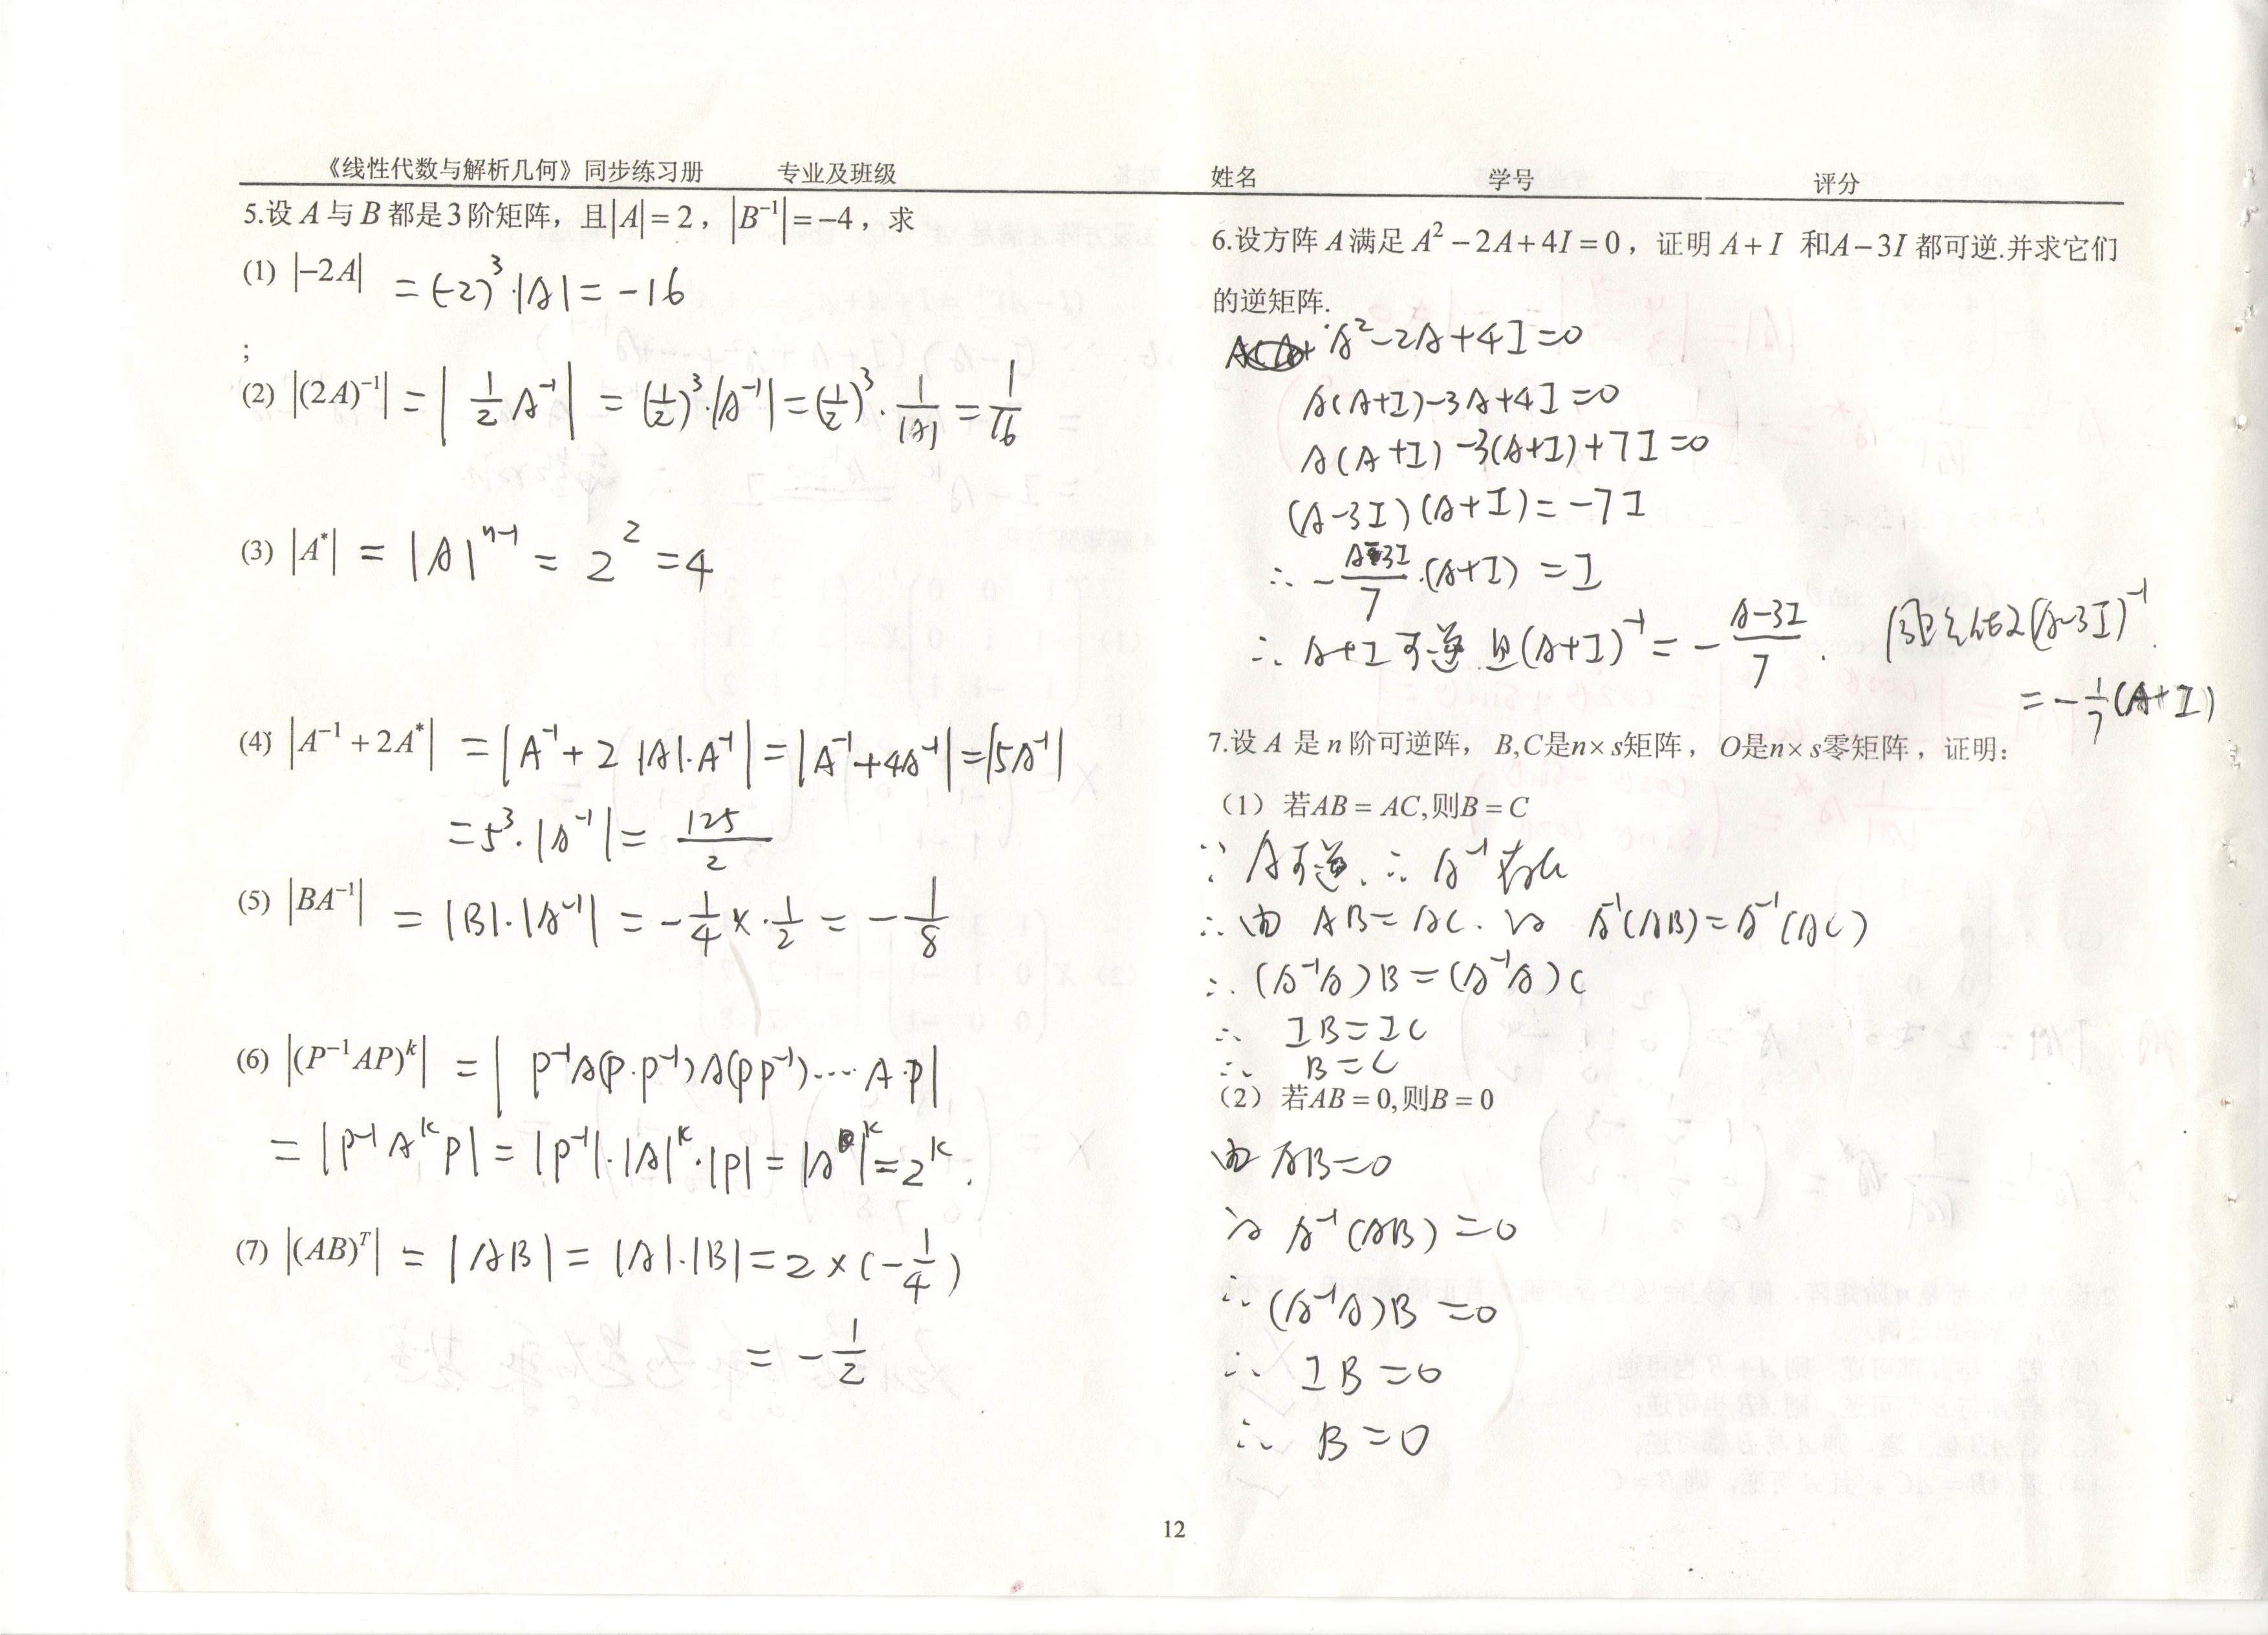 《线性代数与解析几何》同步练习册 专业及班级 姓名 学号 评分
5.设 A 与 B 都是3阶矩阵，且|A|=2，|B⁻¹|=−4，求
(1) |−2A| = (−2)³·|A| = −16
;
(2) |(2A)⁻¹| = |½A⁻¹| = (½)³·|A⁻¹| = (½)³·1/|A| = 1/16
(3) |A*| = |A|ⁿ⁻¹ = 2² = 4
(4) |A⁻¹+2A*| = |A⁻¹+2|A|·A⁻¹| = |A⁻¹+4A⁻¹| = |5A⁻¹|
= 5³·|A⁻¹| = 125/2
(5) |BA⁻¹| = |B|·|A⁻¹| = −1/4 × ·1/2 = −1/8
(6) |(P⁻¹AP)ᵏ| = | P⁻¹A(P·P⁻¹)A(PP⁻¹)····A·P|
= |P⁻¹AᵏP| = |P⁻¹|·|A|ᵏ·|P| = |A|ᵏ = 2ᵏ.
(7) |(AB)ᵀ| = |AB| = |A|·|B| = 2×(−1/4)
= −1/2
6.设方阵 A 满足 A²−2A+4I=0，证明 A+I 和A−3I 都可逆.并求它们
的逆矩阵.
A²−2A+4I=0
A(A+I)−3A+4I=0
A(A+I)−3(A+I)+7I=0
(A−3I)(A+I)=−7I
∴ −(A−3I)/7·(A+I) = I
∴ A+I可逆 且(A+I)⁻¹ = −(A−3I)/7. (A−3I)⁻¹
= −1/7(A+I)
7.设 A 是 n 阶可逆阵，B,C是n×s矩阵，O是n×s零矩阵，证明：
（1）若AB=AC,则B=C
∵ A可逆, ∴ A⁻¹存在
∴ 由 AB=AC. 得 A⁻¹(AB)=A⁻¹(AC)
∴ (A⁻¹A)B=(A⁻¹A)C
∴ IB=IC
∴ B=C
（2）若AB=0,则B=0
由 AB=0
得 A⁻¹(AB)=0
∴ (A⁻¹A)B=0
∴ IB=0
∴ B=0
12